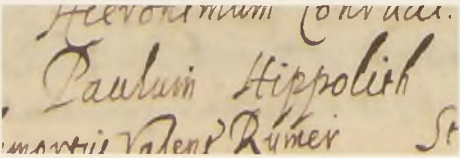 Hieronimum Conradi.
Paulum Hippolith
Valent Rumer St